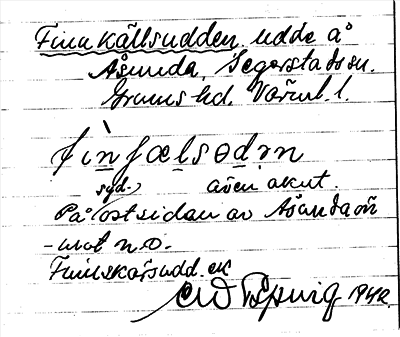 Finnkällsudden. udde å
Åsunda, Segerstads sn.
Grums hd. Värml. l.
fìnfælsødṇ
syd. även akut.
På östsidan av Åsundaön
- mot n.o.
Finnskärsudd. ek
1940.